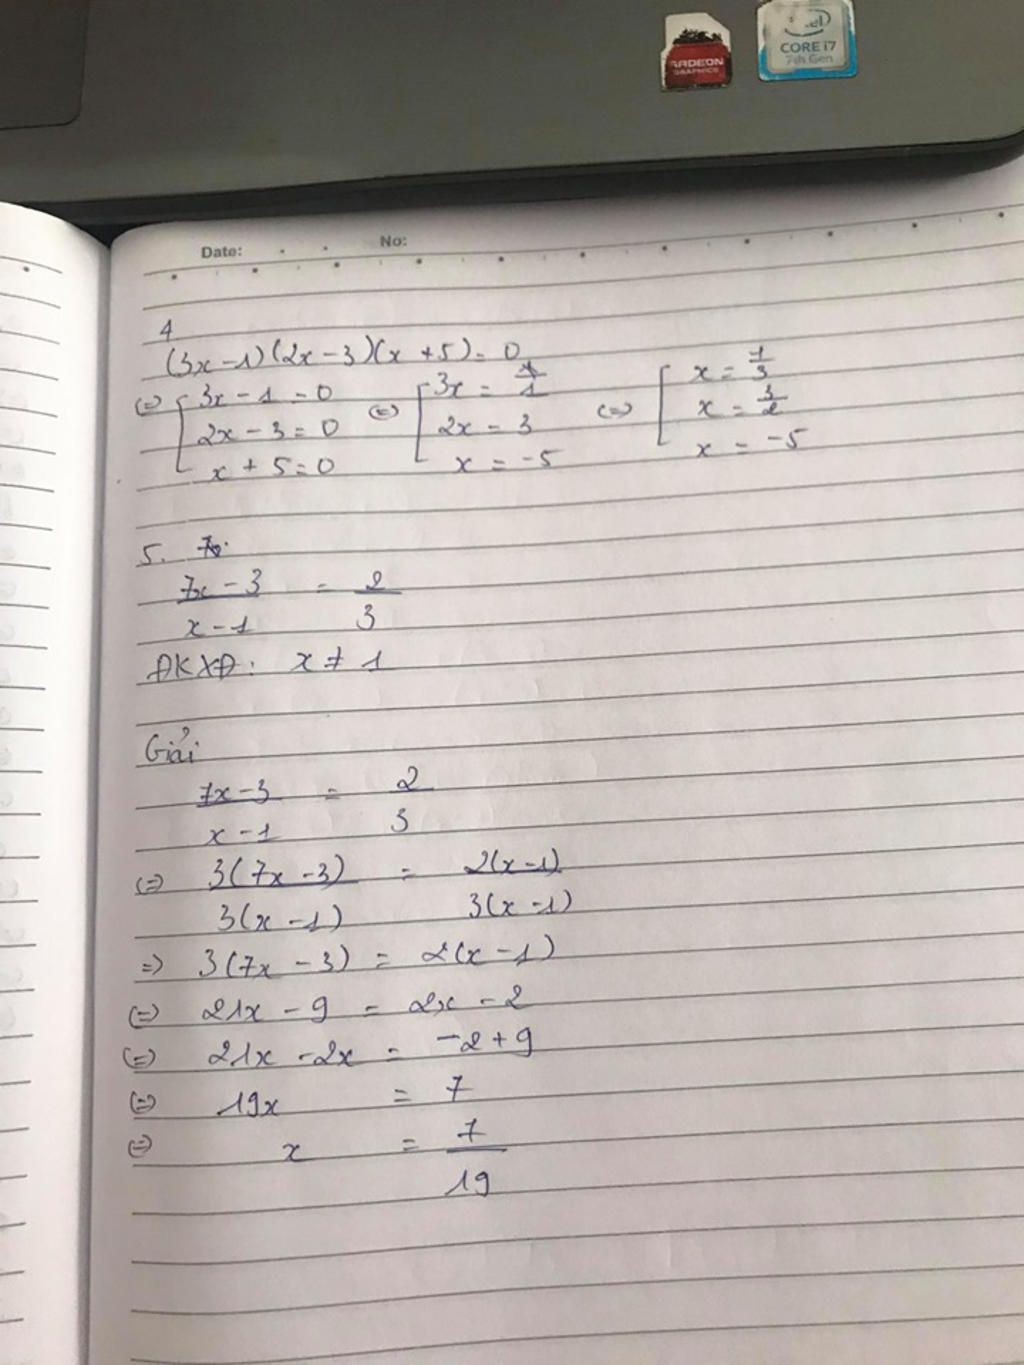 RADEON
GRAPHICS
intel
CORE i7
7th Gen
Date: No:
4
(3x-1)(2x-3)(x+5)=0
(=) [3x-1=0 (=) [3x=1/1 (=) [x=1/3
2x-3=0 2x=3 x=3/2
x+5=0 x=-5 x=-5
5. 7x
7x-3 = 2
x-1 3
ĐKXĐ: x≠1
Giải
7x-3 = 2
x-1 3
(=) 3(7x-3) = 2(x-1)
3(x-1) 3(x-1)
=) 3(7x-3) = 2(x-1)
(=) 21x-9 = 2x-2
(=) 21x-2x = -2+9
(=) 19x = 7
(=) x = 7
19